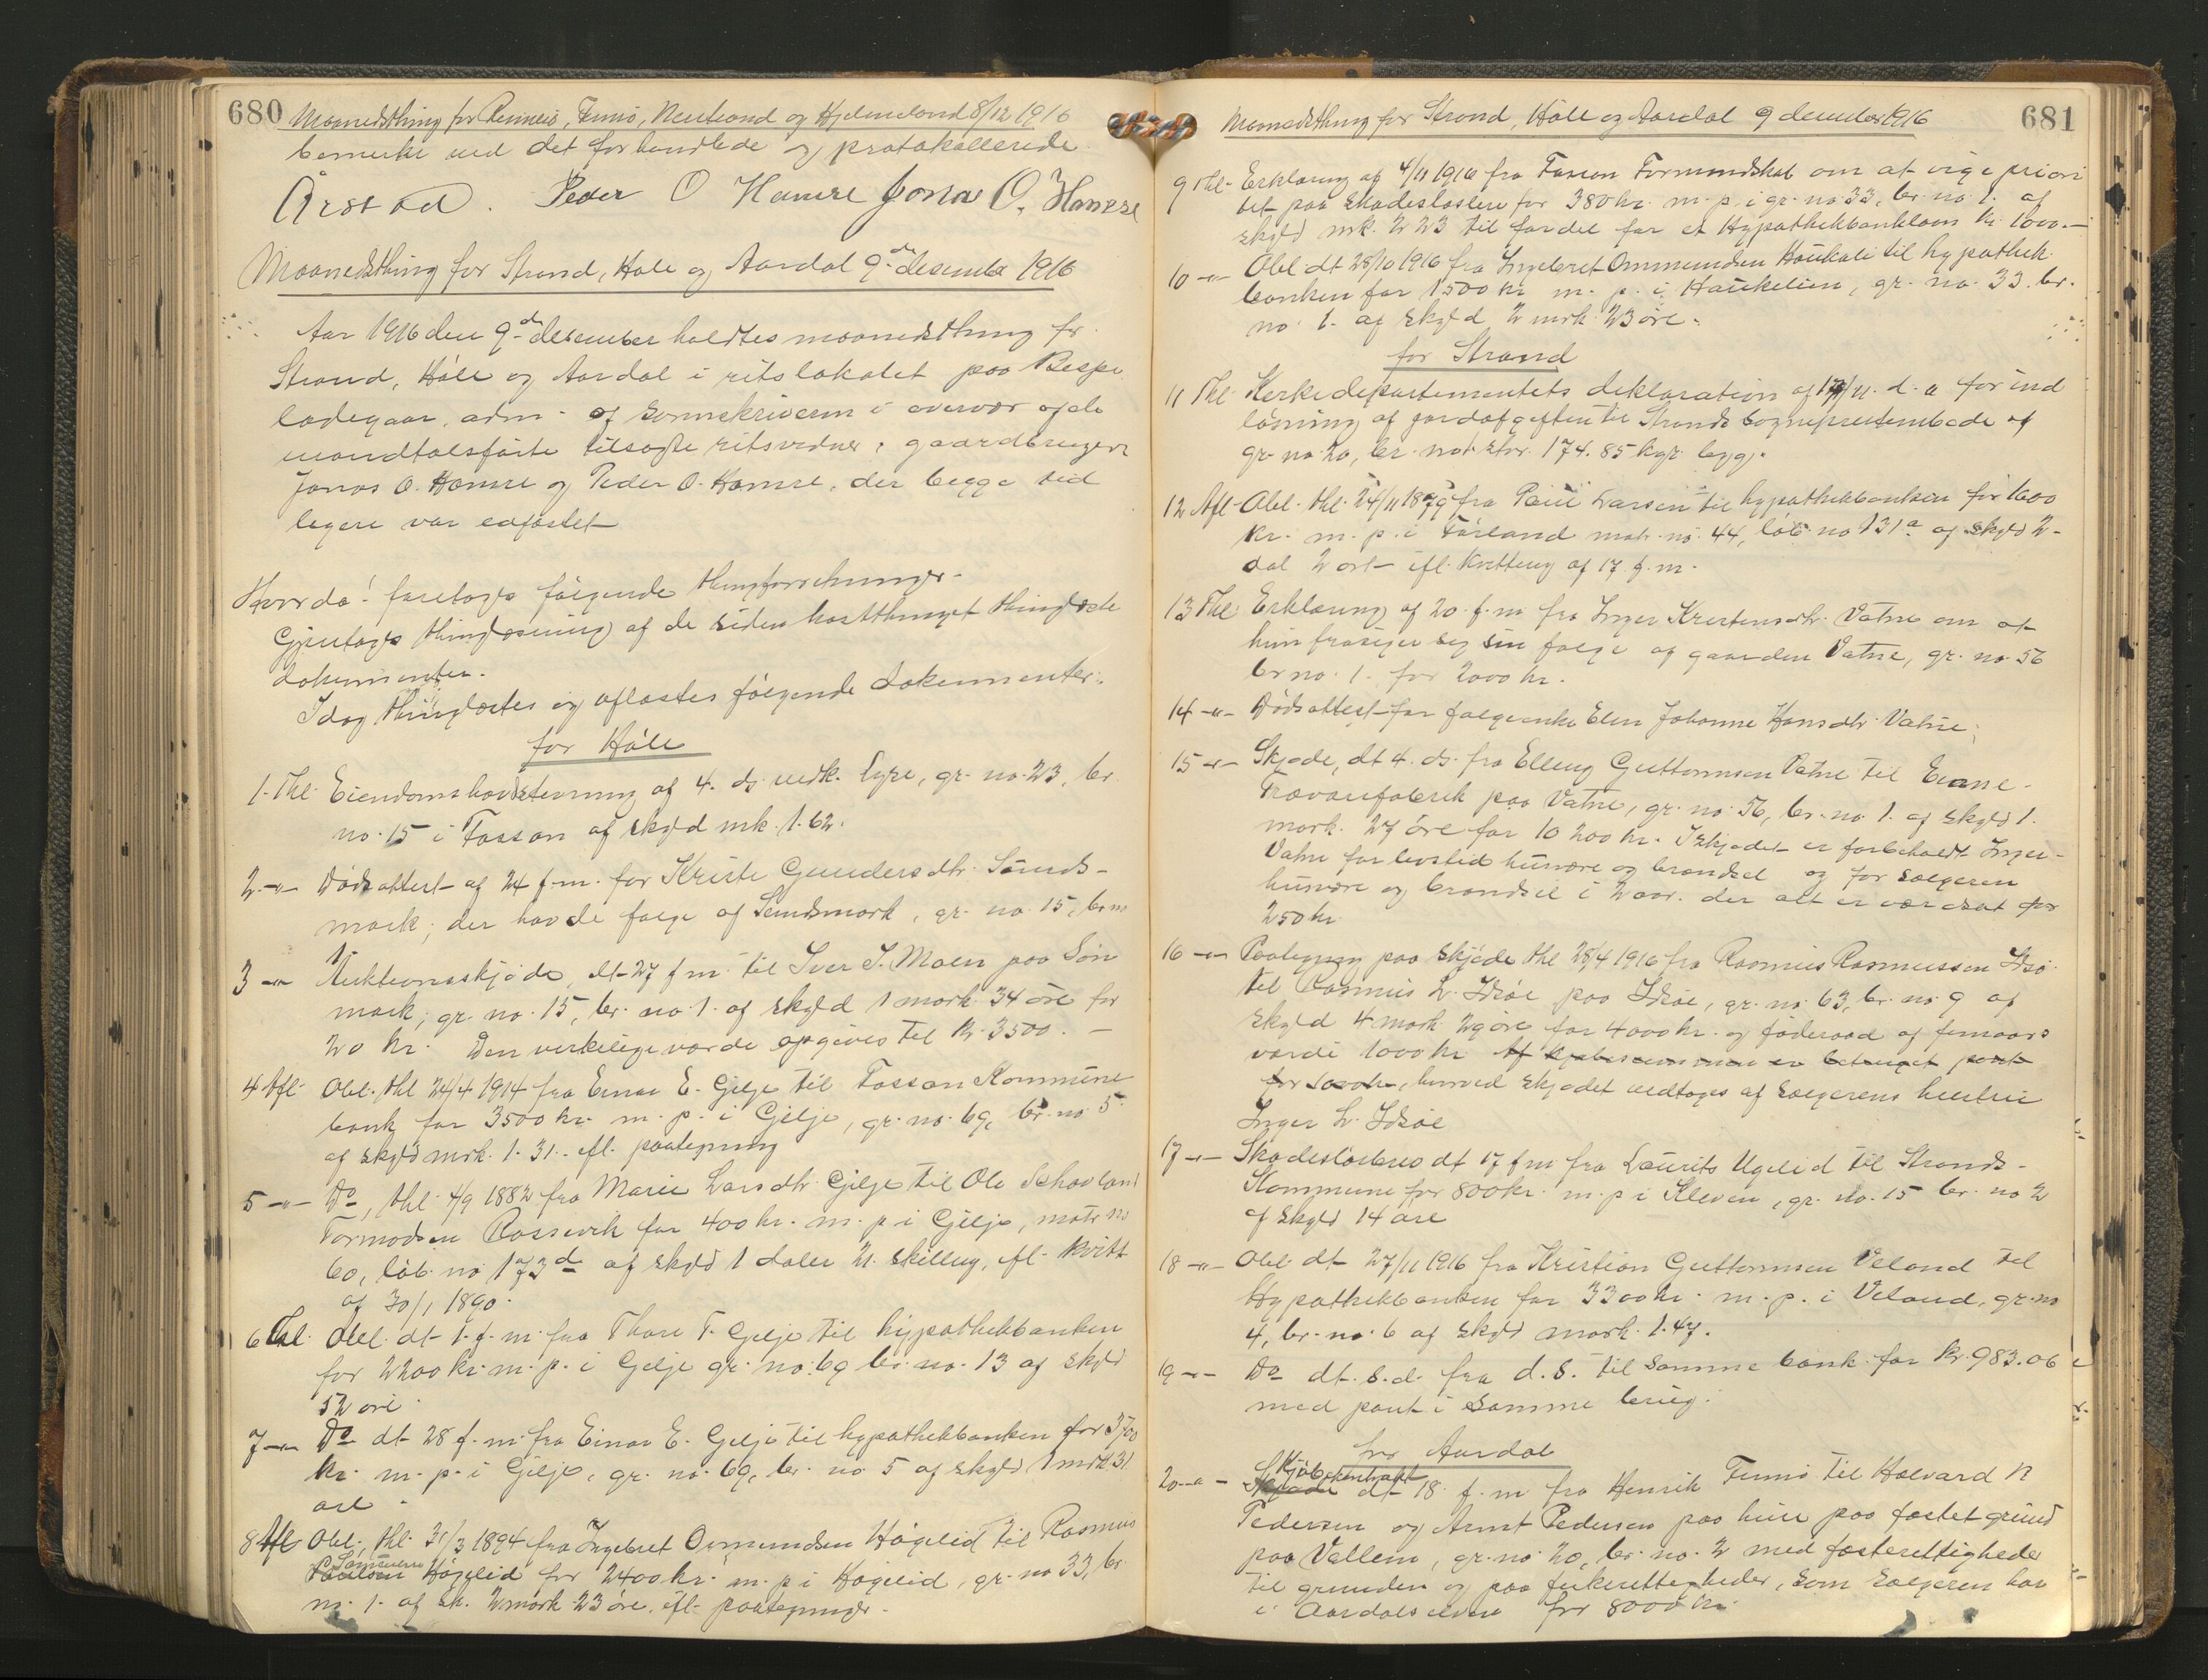 680 Maanedsthing for Rennesø, Finnø, Nerstrand og Hjelmeland 8/12 1916
bemerke ved det forhandlede og protokollerede
Årstad. Peder O Hamre Jonas O. Hamre
Maanedsthing for Strand, Høle og Aardal 9de desember 1916
Aar 1916 den 9de desember holdtes maanedsthing for
Strand, Høle og Aardal i retslokalet paa Bespe
ladegaar, adm. af sorenskriveren i overvær af de
mandtalsførte tilsagte retsvidner, gaardbruger
Jonas O. Hamre og Peder O. Hamre, der begge tid
ligere var edfæstet
Hvorda! foretoges følgende thingforretninger.
Gjentoges thinglæsning af de siden høstthinget thinglæste
dokumenter.
Idag thinglæstes og aflæstes følgende dokumenter:
for Høle
1. Thl. Eiendomshævdstevning af 4. ds. vedk. Eyre, gr. no. 23, br.
no. 15 i Fossan af skyld mk. 1.62.
2. -"- Dødsattest af 24 f.m. for Kirste Gundersdtr. Sønds-
mark, der havde følge af Sundsmark, gr. no. 15, br. no
1.
3 -"- Auktionsskjøde, dt 27 f m. til Iver I. Moen paa Søn
mark, gr. no. 15, br. no 1. af skyld 1 mark 34 øre for
20 kr. Den virkelige værdi opgives til kr. 3500. -
4 Afl. Obl. thl 24/4 1914 fra Einar E. Gilje til Fossan Kommune
bank for 3500 kr. m. p. i Gilje, gr. no. 69, br. no. 5.
af skyld mrk. 1.31. ifl. paategning
5 -"- Do, thl. 4/9 1882 fra Marie Larsdtr. Gilje til Ole Schovland
Tormodsen Rossevik for 400 kr. m. p i Gilje, matr no
60, løb. no 173d af skyld 1 daler 21 skilling, ifl. kvitt
af 30/1 1890.
6 Thl. Obl. dt 1. f. m. fra Thore T. Gilje til hypothekbanken
for 2200 kr. m. p. i Gilje gr. no. 69 br. no. 13 af skyld
52 øre.
7 -"- Do dt 28 f. m. fra Einar E. Gilje til hypothekbanken for 3700
kr. m. p. i Gilje, gr. no. 69, br. no 5 af skyld 1 mrk 31
øre.
8 Afl Obl., thl. 31/3 1894 fra Ingebret Ommundsen Høgelid til Rasmus
Paulsen Høgelid for 2400 kr. m. p i Høgelid, gr. no 33, br.
no. 1. af sk. 2 mark 23 øre, ifl. paategninger.
Maanedsthing for Strand, Høle og Aardal 9 desember 1916 681
9 Thl. Erklæring af 4/11 1916 fra Fossan Formandskab om at vige priori
tet paa skadesløsbrev for 380 kr. m. p. i gr. no 33, br. no 1. af
skyld mk. 2 23 til fordel for et Hypothekbanklaan kr 1000.-
10 -"- Obl. dt 28/10 1916 fra Ingebret Ommundsen Haukali til hypothek
banken for 1500 kr m. p. i Haukelien, gr. no. 33. br.
no. 1. af skyld 2 mrk 23 øre.
for Strand
11 Thl. Kerkedepartementets deklaration af 17/11. d. a for ind
løsning af jordafgiften til Strands sogneprestembede af
gr. no 20, br. no 1 stor 174.85 kgr. byg.
12 Afl. Obl. thl. 24/11 1879 fra Paul Larsen til hypothekbanken for 1600
kr. m. p. i Førland matr. no. 44, løb no 131a af skyld 2
dal 2 ort ifl. kvittering af 17. f. m.
13 Thl Erklæring af 20. f. m fra Inger Kristensdtr. Vatne om at
hun frasiger sig sin følge af gaarden Vatne, gr. no 56
br no. 1. for 2000 kr.
14 -"- Dødsattest for følgeenke Elen Johanne Hansdtr. Vatne.
15 -"- Skjøde, dt 4. ds. fra Elling Guttormsen Vatne til Evane-
Trævarefabrik paa Vatne, gr. no. 56, br. no 1. af skyld 1.
mark. 27 øre for 10 200 kr. I skjødet er forbeholdt Inger-
Vatne for livstid husvære og brændsel og for sælgeren
husvære og brændsel i 2 aar. der alt er værdsat for
250 kr.
16 -"- Paategning paa skjøde thl 28/4 1916 fra Rasmus Rasmussen Idsø
til Rasmus L. Idsøe paa Idsøe, gr. no. 63, br. no 9 af
skyld 4 mark 29 øre for 4000 kr. og føderaad af femaars
værdi 1000 kr Af kjøbesummen er betinget pant
, hvorved skjødet vedtages af sælgerens hustru
Inger L. Idsøe
17 -"- Skadesløsbrev dt 17 f m fra Laurits Ugelid til Strands-
Kommune for 800 kr. m. p i Kleven, gr. no. 15 br. no 2
af skyld 14 øre
18 -"- Obl. dt 27/11 1916 fra Kristian Guttormsen Veland til
Hypothekbanken for 3300 kr. m. p. i Veland, gr. no
4, br. no. 6 af skyld mark. 1.47.
19 -"- Do dt. s. d. fra d. s. til samme bank for kr. 983.06
med pant i samme brug.
for Aardal
20 -"- Kjøbekontrakt dt 18. f. m fra Henrik Finnø til Halvard N
Pedersen og Arnt Pedersen paa huse paa fæstet grund
paa Vallem, gr. no 20, br. no. 2 med fæsterettigheder
til grunden og paa fiskerettigheder, som sælgeren har
i Aardalselven for 8000 kr.